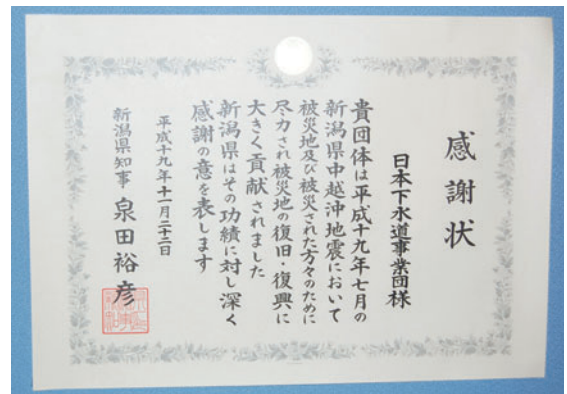 感謝状
日本下水道事業団様
貴団体は平成十九年七月の
新潟県中越沖地震において
被災地及び被災された方々のために
尽力され被災地の復旧・復興に
大きく貢献されました
新潟県はその功績に対し深く
感謝の意を表します
平成十九年十一月二十二日
新潟県知事 泉田裕彦